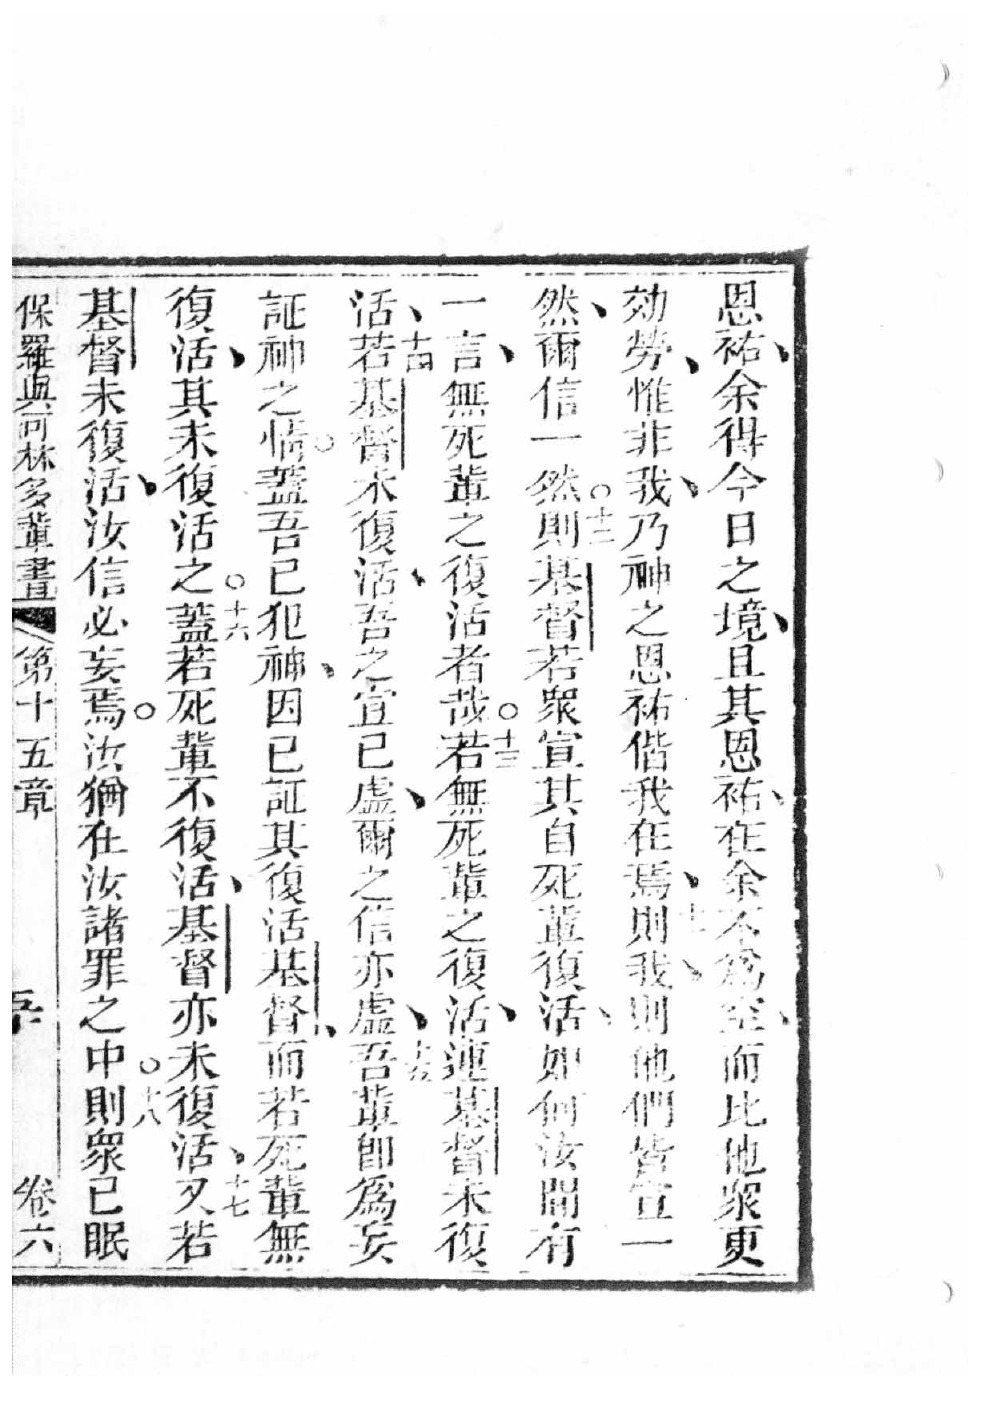 恩祐、余得今日之境、且其恩祐、在余不爲空、而比他衆更
効勞、惟非我、乃神之恩祐偕我在焉、十一則我、則他們皆宣一
然、爾信一然。十二則基督若衆宣其自死輩復活、如何汝間有
一言、無死輩之復活者哉。十三若無死輩之復活、連基督未復
活、十四若基督未復活、吾之宣已虛、爾之信亦虛、十五吾輩卽爲妄
証神之情。蓋吾已犯神、因已証其復活基督、而若死輩無
復活、其未復活之。十六蓋若死輩不復活、基督亦未復活、十七又若
基督未復活、汝信必妄焉。汝猶在汝諸罪之中。十八則衆已眠
保羅與可林多輩書 第十五章 卷六